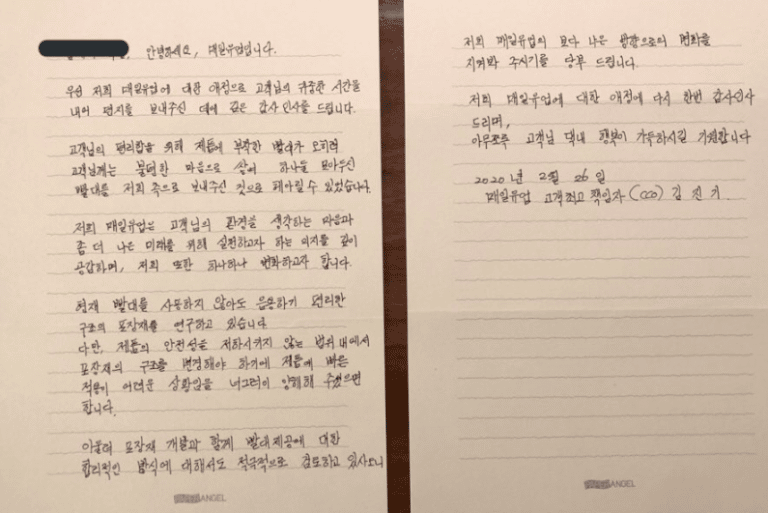 안녕하세요, 매일유업입니다.
우선 저희 매일유업에 대한 애정으로 고객님의 귀중한 시간을
내어 편지를 보내주신 데에 깊은 감사 인사를 드립니다.
고객님의 편리함을 위해 제품에 부착한 빨대가 오히려
고객님께는 불편한 마음으로 쌓여 하나둘 모아두신
빨대를 저희 측으로 보내주신 것으로 헤아릴 수 있었습니다.
저희 매일유업은 고객님의 환경을 생각하는 마음과
좀 더 나은 미래를 위해 실천하고자 하는 의지를 깊이
공감하며, 저희 또한 하나하나 변화하고자 합니다.
현재 빨대를 사용하지 않아도 음용하기 편리한
구조의 포장재를 연구하고 있습니다
다만, 제품의 안전성을 저하시키지 않는 범위 내에서
포장재의 구조를 변경해야 하기에 제품에 빠른
적용이 어려운 상황임을 너그러이 양해해 주셨으면
합니다.
아울러 포장재 개발과 함께 빨대제공에 대한
합리적인 방식에 대해서도 적극적으로 검토하고 있사오니
ANGEL
저희 매일유업의 보다 나은 방향으로의 변화를
지켜봐 주시기를 당부 드립니다.
저희 매일유업에 대한 애정에 다시 한번 감사인사
드리며,
아무쪼록 고객님 댁내 행복이 가득하시길 기원합니다
2020년 2월 26일
매일유업 고객최고책임자 (CCO) 김진기.
ANGEL